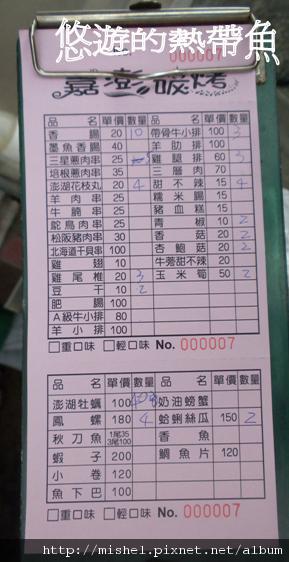 悠遊的熱帶魚
000007
嘉澎碳烤
品名 單價 數量 品名 單價 數量
香腸 20 10 帶骨牛小排 100 3
墨魚香腸 40 羊肋排 100
三星蔥肉串 25 雞腿排 60 3
培根蔥肉串 35 三層肉 70
澎湖花枝丸 20 4 甜不辣 15 4
羊肉串 25 糯米腸 15
牛腩串 25 豬血糕 15
鴕鳥肉串 25 青椒 10 2
松阪豬肉串 30 香菇 20 2
北海道干貝串 100 杏鮑菇 20 2
雞翅 10 牛蒡甜不辣 20
雞尾椎 20 3 玉米筍 50 2
豆干 10 2
肥腸 100
A級牛小排 80
羊小排 100
□重口味 □輕口味 No. 000007
品名 單價 數量 品名 單價 數量
澎湖牡蠣 100 奶油螃蟹
鳳螺 180 4 蛤蜊絲瓜 150 2
秋刀魚 1尾35 3尾100 香魚
蝦子 200 鯛魚片 120
小卷 120
魚下巴 100
□重口味 □輕口味 No. 000007
http://mishel.pixnet.net/album